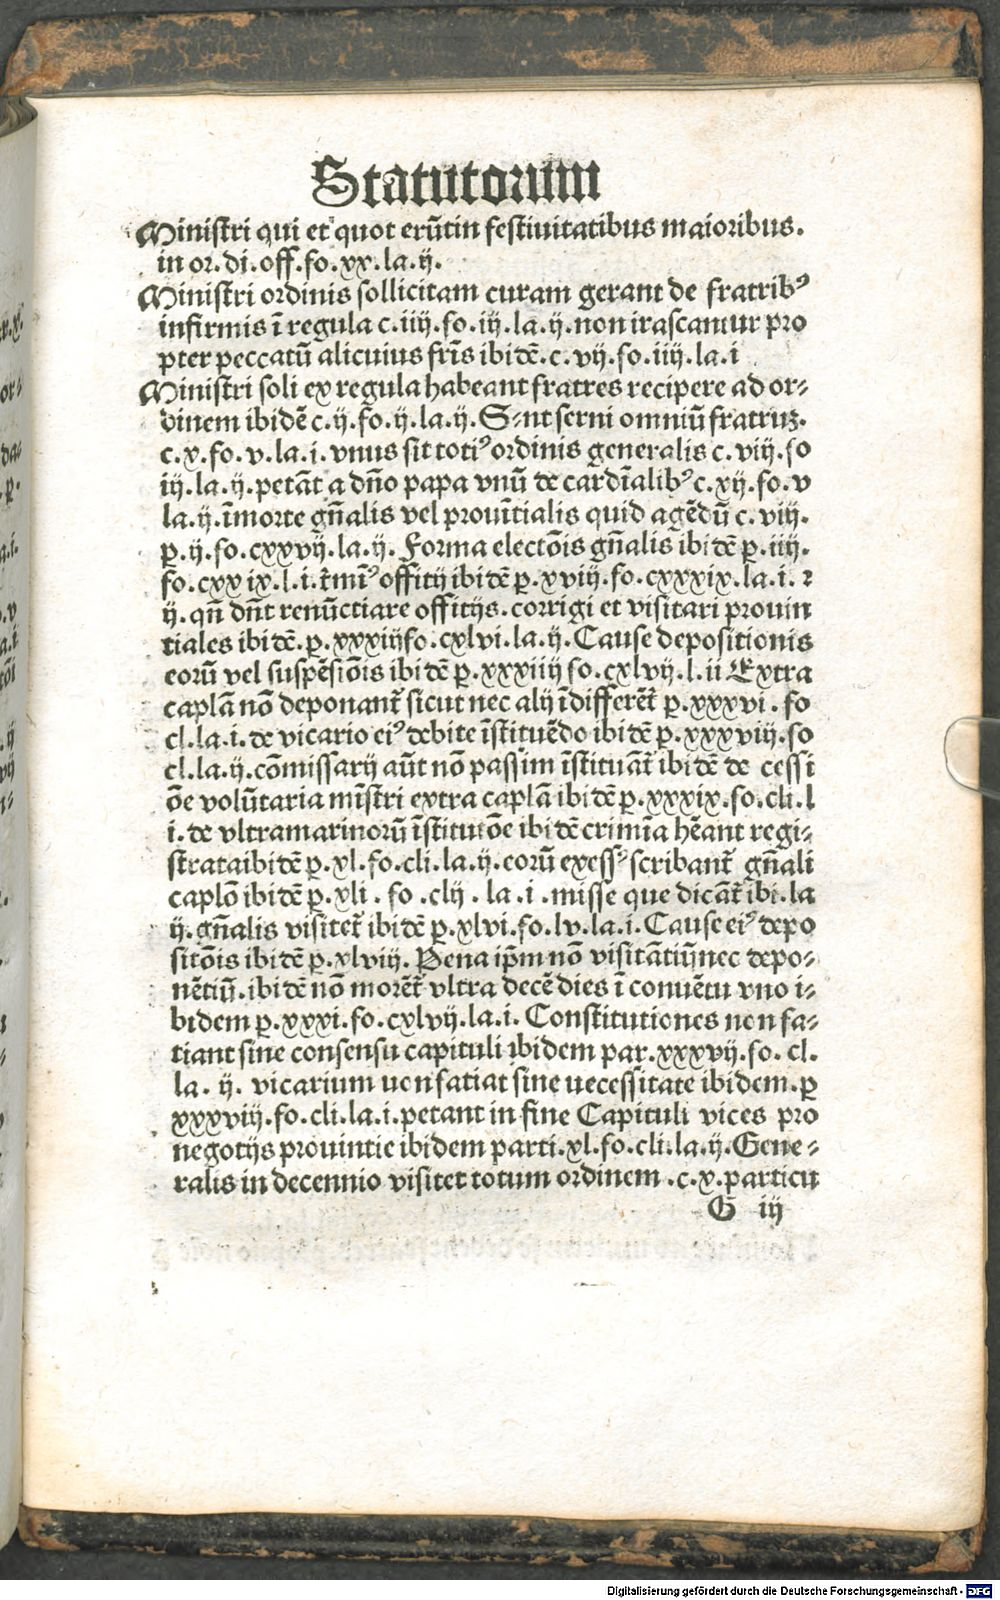 Statutorum
Ministri qui et quot erūtin festiuitatibus maioribus.
in or. di. off. fo. xx. la. ij.
Ministri ordinis sollicitam curam gerant de fratribꝰ
infirmis ī regula c. iiij. fo. iij. la. ij. non irascantur pro
pter peccatū alicuius fr̄is ibidē. c. vij. fo. iiij. la. i
Ministri soli ex regula habeant fratres recipere ad or⸗
dinem ibidē c. ij. fo. ij. la. ij. S nt serui omniū fratruꝫ.
c. x. fo. v. la. i. vnus sit totiꝰ ordinis generalis c. viij. fo
iij. la. ij. petāt a dn̄o papa vnū de cardīalibꝰ c. xij. fo. v
la. ij. īmorte gn̄alis vel prouītialis quid agēdū c. viij.
ꝑ. ij. fo. cxxvij. la. ij. Forma electōis gn̄alis ibidē ꝑ. iij.
fo. cxx ix. l. i. t̄miꝰ offitij ibidē ꝑ. xviij. fo. cxxxix. la. i. ꝛ
ij. qn̄ dn̄t renūctiare offitijs. corrigi et visitari prouin
tiales ibidē. ꝑ. xxxiijfo. cxlvi. la. ij. Cause depositionis
eorū vel suspēsiōis ibidē ꝑ. xxxiiij fo. cxlvij. l. ii Extra
caplā nō deponant̄ sicut nec alij īdifferēt̄ ꝑ. xxxvi. fo
cl. la. i. de vicario eiꝰ debite īstituēdo ibidē ꝑ. xxxviij. fo
cl. la. ij. cōmissarij aūt nō passim īstituāt̄ ibidē de cessi
ōe volūtaria mīstri extra caplā ibidē ꝑ. xxxix. fo. cli. l
i. de vltramarinorū īstituōe ibidē crimīa hēant regi⸗
strataibidē ꝑ. xl. fo. cli. la. ij. eorū excessꝰ scribant̄ gn̄ali
caplō ibidē ꝑ. xli. fo. clij. la. i. misse que dicāt̄ ibi. la
ij. gn̄alis visitet̄ ibidē ꝑ. xlvi. fo. lv. la. i. Cause eiꝰ depo
sitōis ibidē ꝑ. xlviij. Pena ip̄m nō visitātiū nec depo⸗
nētiū. ibidē nō morēt̄ vltra decē dies ī conuētu vno i⸗
bidem ꝑ. xxxi. fo. cxlvij. la. i. Constitutiones non fa⸗
tiant sine consensu capituli ibidem par. xxxvij. fo. cl.
la. ij. vicarium uon fatiat sine uecessitate ibidem. ꝑ
xxxviij. fo. cli. la. i. petant in fine Capituli vices pro
negotijs prouintie ibidem parti. xl. fo. cli. la. ij. Gene⸗
ralis in decennio visitet totum ordinem. c. x. particu
G iij
Digitalisierung gefördert durch die Deutsche Forschungsgemeinschaft - DFG